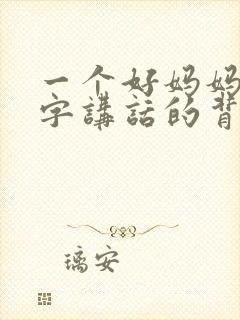 一个好妈妈
字講話的背
璃安